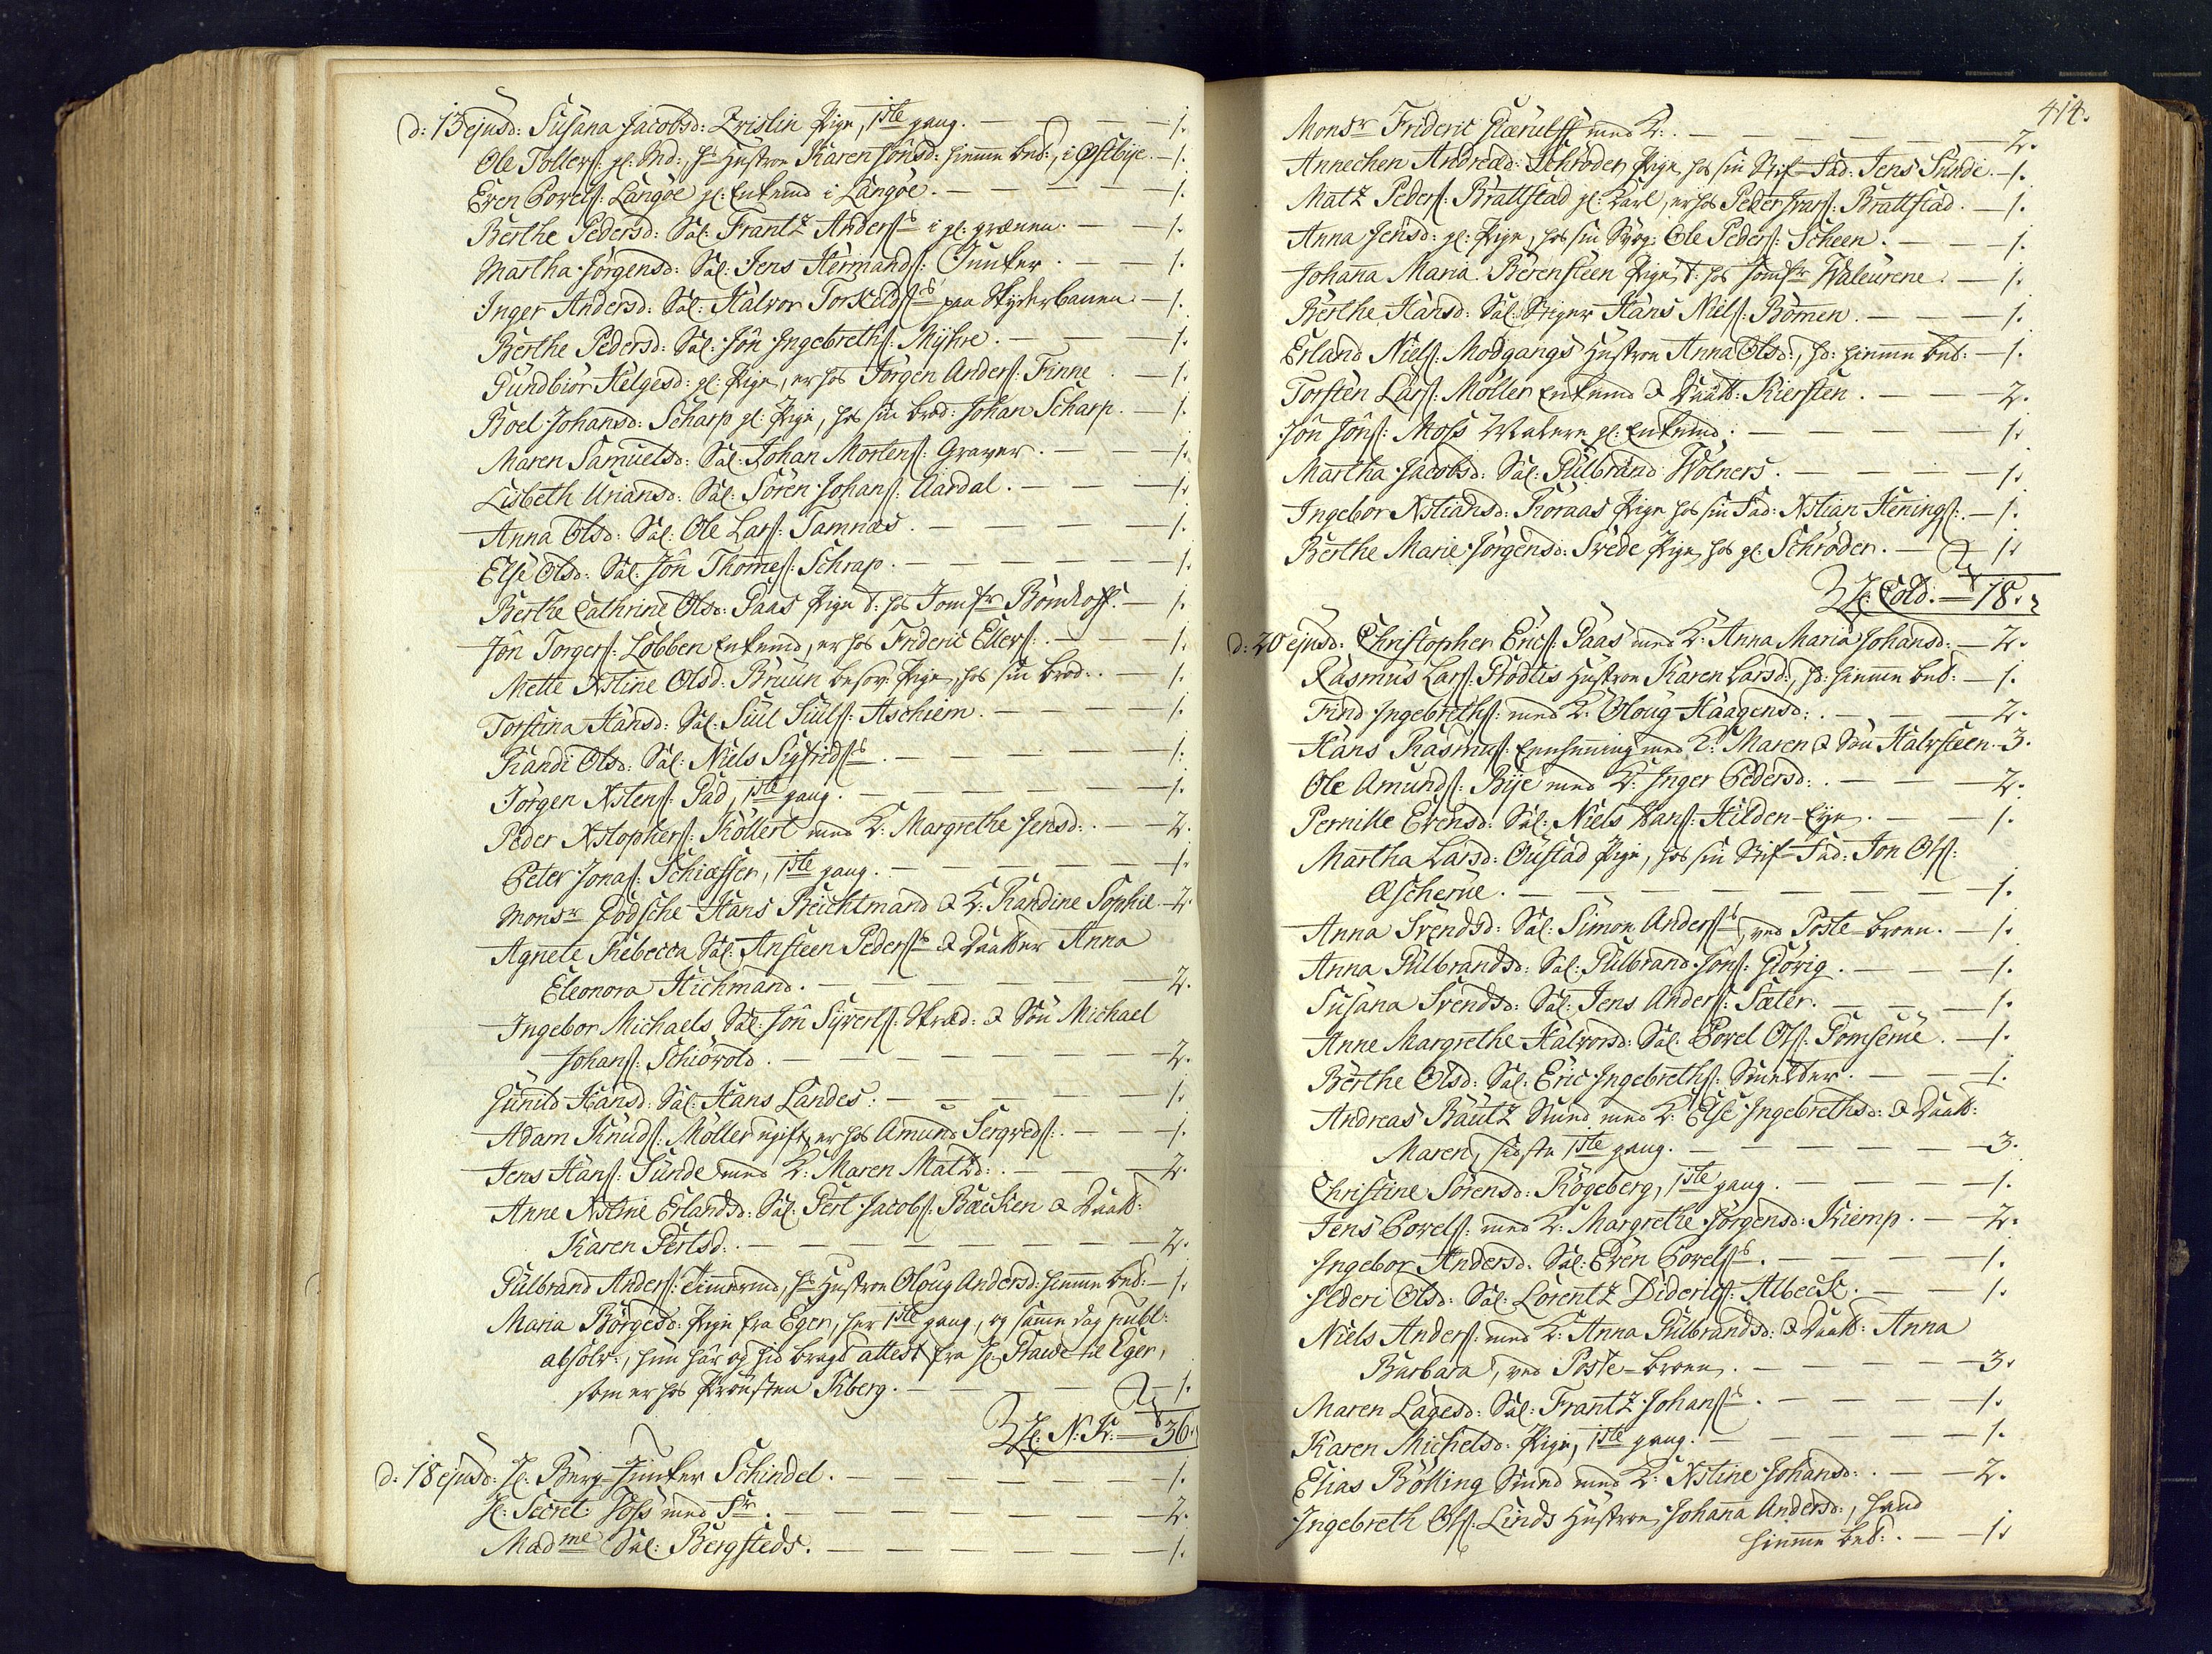 d: 13 ejusd: Susana Jacobsd: Zrislin Pige, 1ste gang. — 1.
Ole Tollefs: gl: Md: hs Hustroe Karen Jônsd: hiemme bet:, i Østbije. — 1.
Even Povels: Langöe gl: Enkemd i Langöe. — 1.
Berthe Pedersd: Sal: Frantz Anders: i gl: grænen. — 1.
Martha Jörgensd: Sal: Jens Hermands: Junker. — 1.
Inger Andersd: Sal: Halvor Torkilds: paa Skyderbanen — 1.
Berthe Pedersd: Sal: Jôn Ingebreths: Myhre. — 1.
Gundbiör Helgesd: gl: Pige, er hos Jörgen Anders: Finne. — 1.
Boel Johansd: Scharp gl: Pige, hos sin brod: Johan Scharp. — 1.
Maren Samuelsd: Sal: Johan Mortens: Graver. — 1.
Lisbeth Uriansd: Sal: Sören Johans: Aardal. — 1.
Anna Olsd: Sal: Ole Lars: Tamnæs. — 1.
Else Olsd: Sal: Jôn Thomes: Schrap. — 1.
Berthe Cathrine Olsd: Paas Pige t: hos Jomfr Bornhoff. — 1.
Jôn Torgers: Lobben Enkemd, er hos Frideric Ellers: — 1.
Mette Xstine Olsd: Bruun besov: Pige, hos sin brod: — 1.
Torstina Hansd: Sal: Siul Siuls: Aschiem. — 1.
Randi Olsd: Sal: Niels Sigfrids: — 1.
Jörgen Xstens: Gad, 1ste gang. — 1.
Peder Xstophers: Kollert med K: Margrethe Jensd: — 2.
Peter Jonas: Schiæsser, 1ste gang. — 1.
Monsr Godsche Hans Reichtmand & K: Randine Sophie — 2.
Agnete Rebecca Sal: Ansteen Peders: & Daatter Anna
Eleonora Hichmand. — 2.
Ingebor Michaels Sal: Jôn Syverts: Skræd: & Sön Michael
Johans: Schiövold. — 2.
Gunild Hansd: Sal: Hans Landes. — 1.
Adam Knuds: Möller ugift, er hos Amund Sergveds: — 1.
Jens Hans: Sunde med K: Maren Matzd: — 2.
Anne Xstine Erlandsd: Sal: Gert Jacobs: Backen & Daatt:
Karen Gertsd: — 2.
Gulbrand Anders: Timmermd, hs Hustroe Oloug Andersd: hiemme bet: — 1.
Maria Börgesd: Pige fra Eger, her 1ste gang, og samme dag publ:
absolv:, hun har og hid bragt attest fra H: til Eger,
som er hos Provsten Kiberg. — 1.
H: N: K: — 36.
d: 18 ejusd: H: Berg-Junker Schindel. — 1.
H: Secret: Foss med Fr. — 2.
Madme Sal: Bergsteds. — 1.
414.
Monsr Frideric med K: — 2.
Annechen Andread: Schröder, Pige, hos sin Stif-Fad: Jens Sunde — 1.
Matz Peders: Brattstad gl: Karl, er hos Peder Ivars: Brattstad. — 1.
Anna Jensd: gl: Pige, hos sin Svog: Ole Peders: Scheen. — 1.
Johana Maria Berensteen Pige t: hos Jomfr Waleurene. — 1.
Berthe Hansd: Sal: Stiger Hans Niels: Bömen. — 1.
Erland Niels: Modgangs Hustroe Anna Olsd:, hd: hiemme bet: — 1.
Torsten Lars: Möller Enkemd & Daatt: Kiersten. — 2.
Jôn Jôns: Moss gl: Enkemd. — 1.
Martha Jacobsd: Sal: Gulbrand Wolners. — 1.
Ingebor Xstiansd: Roraas Pige hos sin Fad: Xstian Henings: — 1.
Berthe Marie Jörgensd: Svede Pige, hos gl: Schröder. — 1.
H: Cold. — 18.
d: 20 ejusd: Christopher Erics: Paas med K: Anna Maria Johansd: — 2.
Rasmus Lars: Rödtis Hustroe Karen Larsd:, hd: hiemme bet: — 1.
Find Ingebreths: med K: Oloug Haagensd: — 2.
Hans Rasmus: med K: Maren & Sön Halvsteen. — 3.
Ole Amunds: Bije med K: Inger Pedersd: — 2.
Pernille Evensd: Sal: Niels Hans: Hilden-Eye. — 1.
Martha Larsd: Oustad Pige, hos sin Stif-Fad: Jon Ols:
Æscherüe. — 1.
Anna Svendsd: Sal: Simon Anders:, ved Poste-broen. — 1.
Anna Gulbrandsd: Sal: Gulbrand Jôns: Giörig. — 1.
Susana Svendsd: Sal: Jens Anders: Sæter. — 1.
Anne Margrethe Halvorsd: Sal: Povel Ols: Gomserüe. — 1.
Berthe Olsd: Sal: Eric Ingebreths: Smelter. — 1.
Andreas Bautz Smed med K: Else Ingebrethsd: & Daatt:
Maren, sidste 1ste gang. — 3.
Christine Sörensd: Rögeberg, 1ste gang. — 1.
Jens Povels: med K: Margrethe Jörgensd: Kiemp. — 2.
Ingebor Andersd: Sal: Even Povels: — 1.
Ilderi Olsd: Sal: Lorentz Diderics: Albeck. — 1.
Niels Anders: med K: Anna Gulbrandsd: & Daatt: Anna
Barbara, ved Poste-broen. — 3.
Maren Lagesd: Sal: Frantz Johans: — 1.
Karen Michelsd: Pige, 1ste gang. — 1.
Elias Bölling Smed med K: Xstine Johansd: — 2.
Ingebreth Ols: Linds Hustroe Johana Andersd:, hand
hiemme bet: — 1.